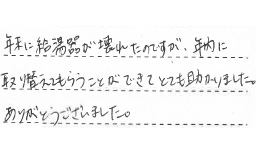 年末に給湯器が壊れたのですが、年内に
取り替えてもらうことができてとても助かりました。
ありがとうございました。